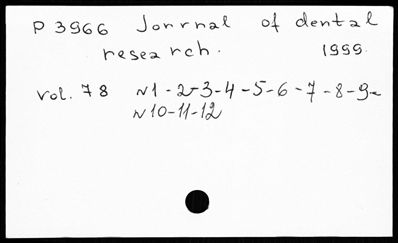 P 3966 Jonrnal of dental
research. 1999.
vol. 78 N1-2-3-4-5-6-7-8-9-
N10-11-12